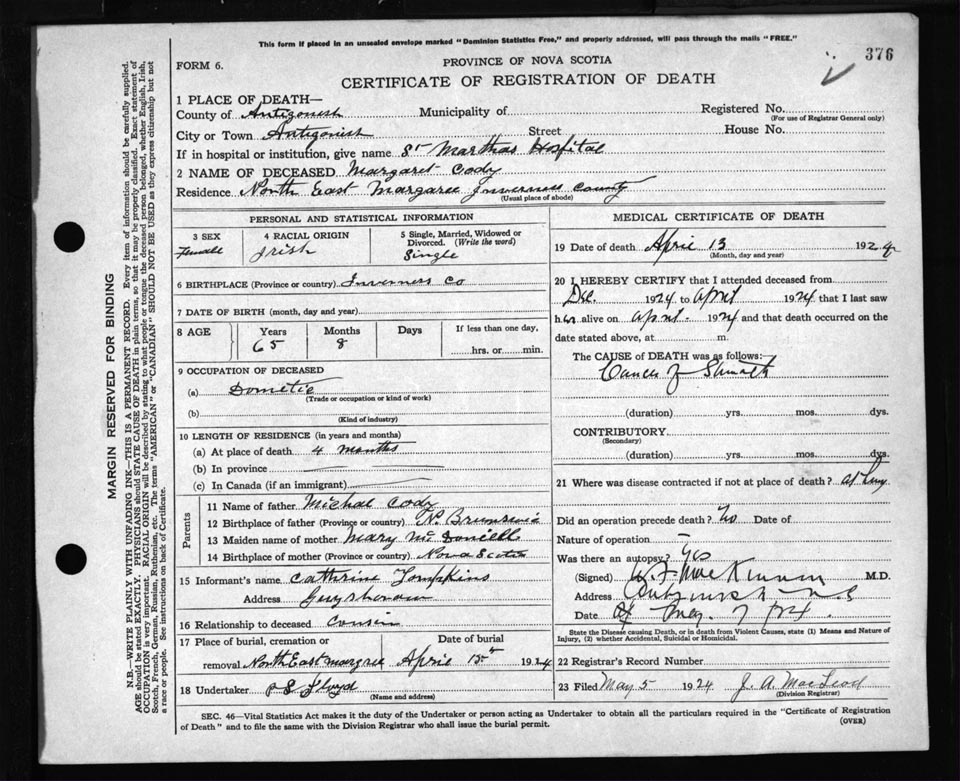 This form if placed in an unsealed envelope marked "Dominion Statistics Free," and properly addressed, will pass through the mails "FREE."
376
FORM 6.
PROVINCE OF NOVA SCOTIA
CERTIFICATE OF REGISTRATION OF DEATH
1 PLACE OF DEATH—
County of Antigonish Municipality of Registered No.
(For use of Registrar General only)
City or Town Antigonish Street House No.
If in hospital or institution, give name St Marthas Hospital
2 NAME OF DECEASED Margaret Cody
Residence North East Margaree Inverness County
(Usual place of abode)
MARGIN RESERVED FOR BINDING
N.B.—WRITE PLAINLY WITH UNFADING INK—THIS IS A PERMANENT RECORD. Every item of information should be carefully supplied.
AGE should be stated EXACTLY. PHYSICIANS should STATE CAUSE OF DEATH in plain terms, so that it may be properly classified. Exact statement of
OCCUPATION is very important. RACIAL ORIGIN will be described by stating to what people or tongue the deceased person belonged, whether English, Irish,
Scotch, French, German, Russian, Ruthenian, etc. The terms "AMERICAN" or "CANADIAN" SHOULD NOT BE USED as they express citizenship but not
a race or people. See instructions on back of Certificate.
PERSONAL AND STATISTICAL INFORMATION
3 SEX
Female
4 RACIAL ORIGIN
Irish
5 Single, Married, Widowed or
Divorced. (Write the word)
Single
6 BIRTHPLACE (Province or country) Inverness Co
7 DATE OF BIRTH (month, day and year)
8 AGE Years Months Days If less than one day,
65 8 hrs. or min.
9 OCCUPATION OF DECEASED
(a) Dometic
(Trade or occupation or kind of work)
(b)
(Kind of industry)
10 LENGTH OF RESIDENCE (in years and months)
(a) At place of death 4 months
(b) In province
(c) In Canada (if an immigrant)
Parents
11 Name of father Michal Cody
12 Birthplace of father (Province or country) N. Brunswic
13 Maiden name of mother Mary Mc Donell
14 Birthplace of mother (Province or country) Nova Scotia
15 Informant's name Cathrine Tompkins
Address Guysborow
16 Relationship to deceased Cousin
17 Place of burial, cremation or Date of burial
removal North East margree April 15th 1924
18 Undertaker Floyd
(Name and address)
MEDICAL CERTIFICATE OF DEATH
19 Date of death April 13 1924
(Month, day and year)
20 I HEREBY CERTIFY that I attended deceased from
Dec. 1924 to April 1924 that I last saw
her alive on April 1924 and that death occurred on the
date stated above, at m.
The CAUSE of DEATH was as follows:
Cancer of Stomach
(duration) yrs. mos. dys.
CONTRIBUTORY
(Secondary)
(duration) yrs. mos. dys.
21 Where was disease contracted if not at place of death? at
Did an operation precede death? No Date of
Nature of operation –
Was there an autopsy? Yes
(Signed) W. F. MacKinnon M.D.
Address Antigonish N.S
Date
State the Disease causing Death, or in death from Violent Causes, state (1) Means and Nature of
Injury, (2) whether Accidental, Suicidal or Homicidal.
22 Registrar's Record Number
23 Filed May 5 1924 J. A. MacLeod
(Division Registrar)
SEC. 46—Vital Statistics Act makes it the duty of the Undertaker or person acting as Undertaker to obtain all the particulars required in the "Certificate of Registration
of Death" and to file the same with the Division Registrar who shall issue the burial permit.
(OVER)